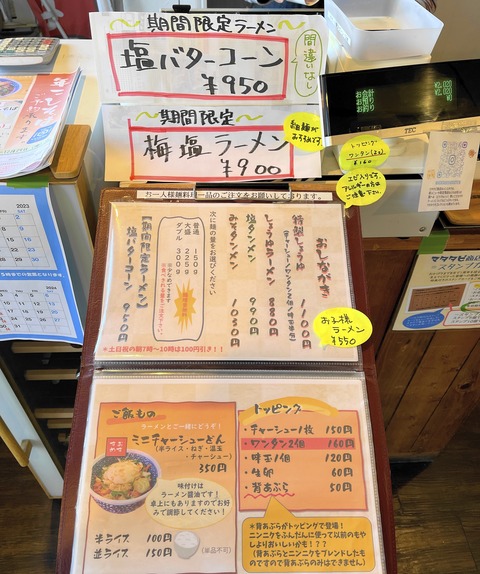 期間限定ラーメン
塩バターコーン
¥950
間違いなし
期間限定
梅塩ラーメン
¥900
細麺が
おすすめです。
お会計
お預り
お釣り
TEC
トッピング
ワンタン(2コ)
¥160
エビ入りです。
アレルギーの方は
ご注意下さい。
お一人様麺料理一品のご注文をお願いしております。
おしながき
特製しょうゆ 1100円
(チャーシュー・ワンタン2個・味玉半個)
しょうゆラーメン 880円
塩タンメン 990円
みそタンメン 1050円
次に麺の量をお選びください
普通 150g
大盛 225g
ダブル 300g
【期間限定ラーメン】
塩バターコーン 950円
*土日祝の朝7時~10時は100円引き!!
お子様
ラーメン
¥550
ご飯もの
ラーメンとご一緒にどうぞ!
ミニチャーシューどん
(半ライス・ねぎ・温玉
・チャーシュー)
350円
味付けは
ラーメン醤油です!
卓上にもありますのでお好
みで調節してください!
半ライス 100円
並ライス 150円
(単品不可)
トッピング
・チャーシュー1枚 150円
・ワンタン2個 160円
・味玉1個 120円
・生卵 60円
・背あぶら 50円
*背あぶらがトッピングで登場!
ニンニクをふんだんに使って以前のもや
しよりおいしいかも!??
(背あぶらとニンニクをブレンドしたも
のですので背あぶらのみはできません)
2023
2024